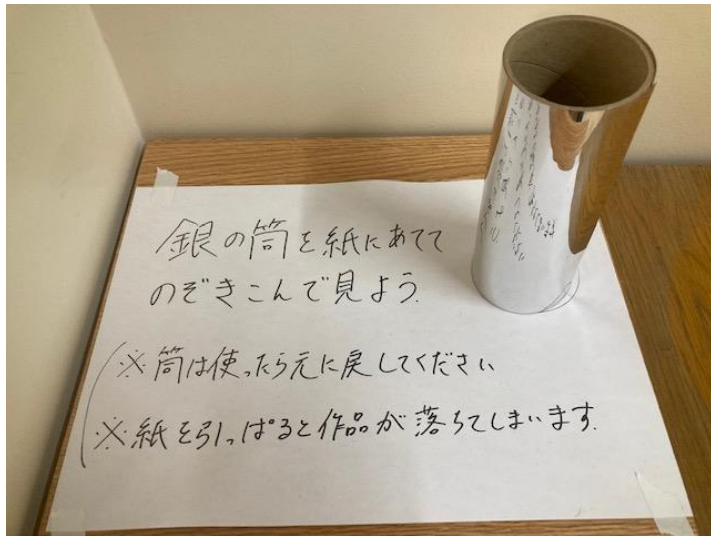 銀の筒を紙にあてて
のぞきこんで見よう.
※筒は使ったら元に戻してください
※紙を引っぱると作品が落ちてしまいます.